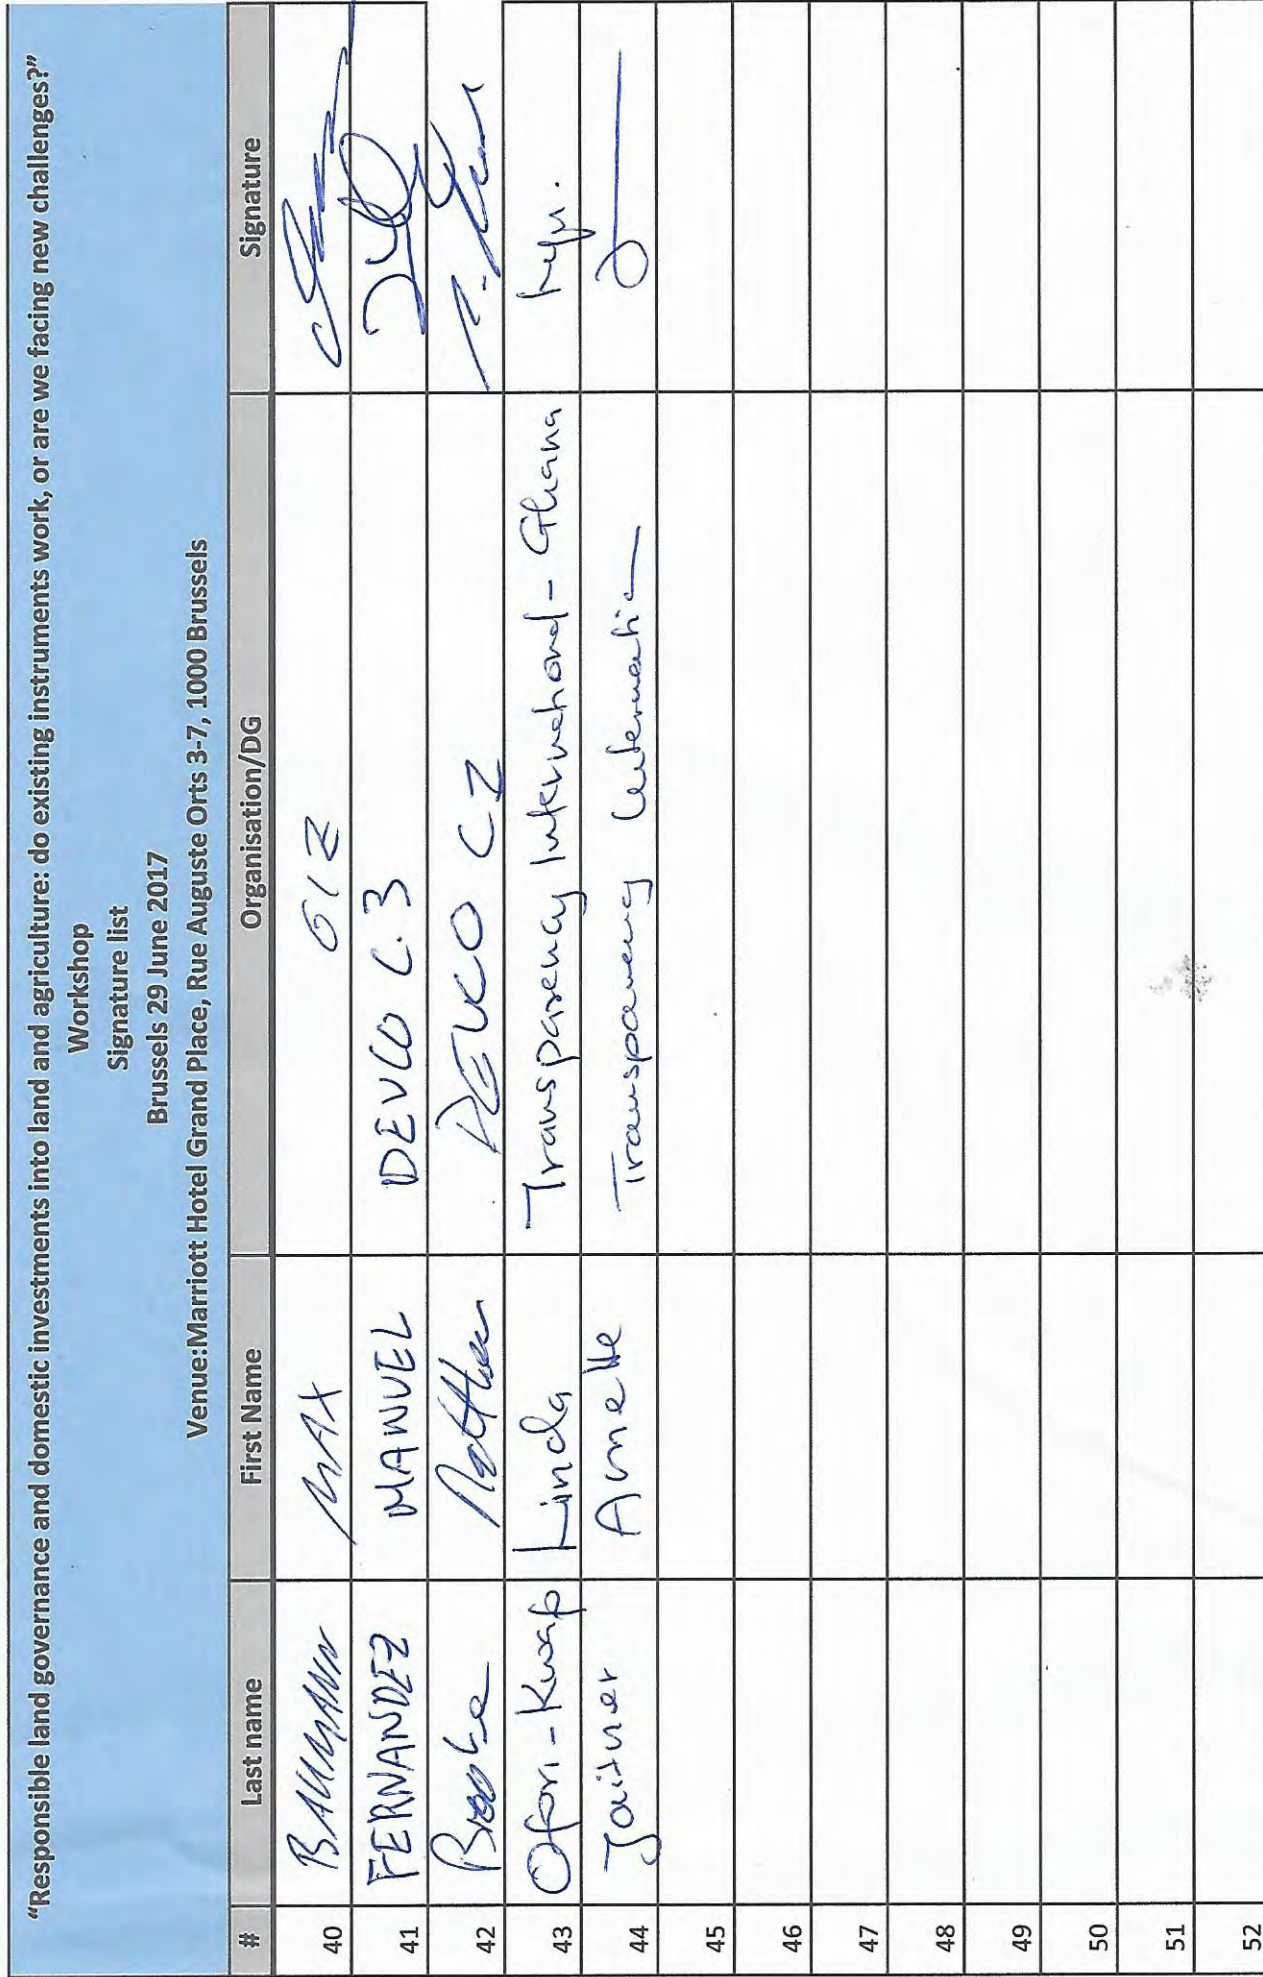 “Responsible land governance and domestic investments into land and agriculture: do existing instruments work, or are we facing new challenges?”
Workshop
Signature list
Brussels 29 June 2017
Venue:Marriott Hotel Grand Place, Rue Auguste Orts 3-7, 1000 Brussels
# Last name First Name Organisation/DG Signature
40 BAUMANN MAX GIZ
41 FERNANDEZ MANUEL DEVCO C.3
42 DEVCO C2
43 Ofori-Kwafo Linda Transparency International-Ghana
44 Jaitner Annette Transparency Internatio
45
46
47
48
49
50
51
52